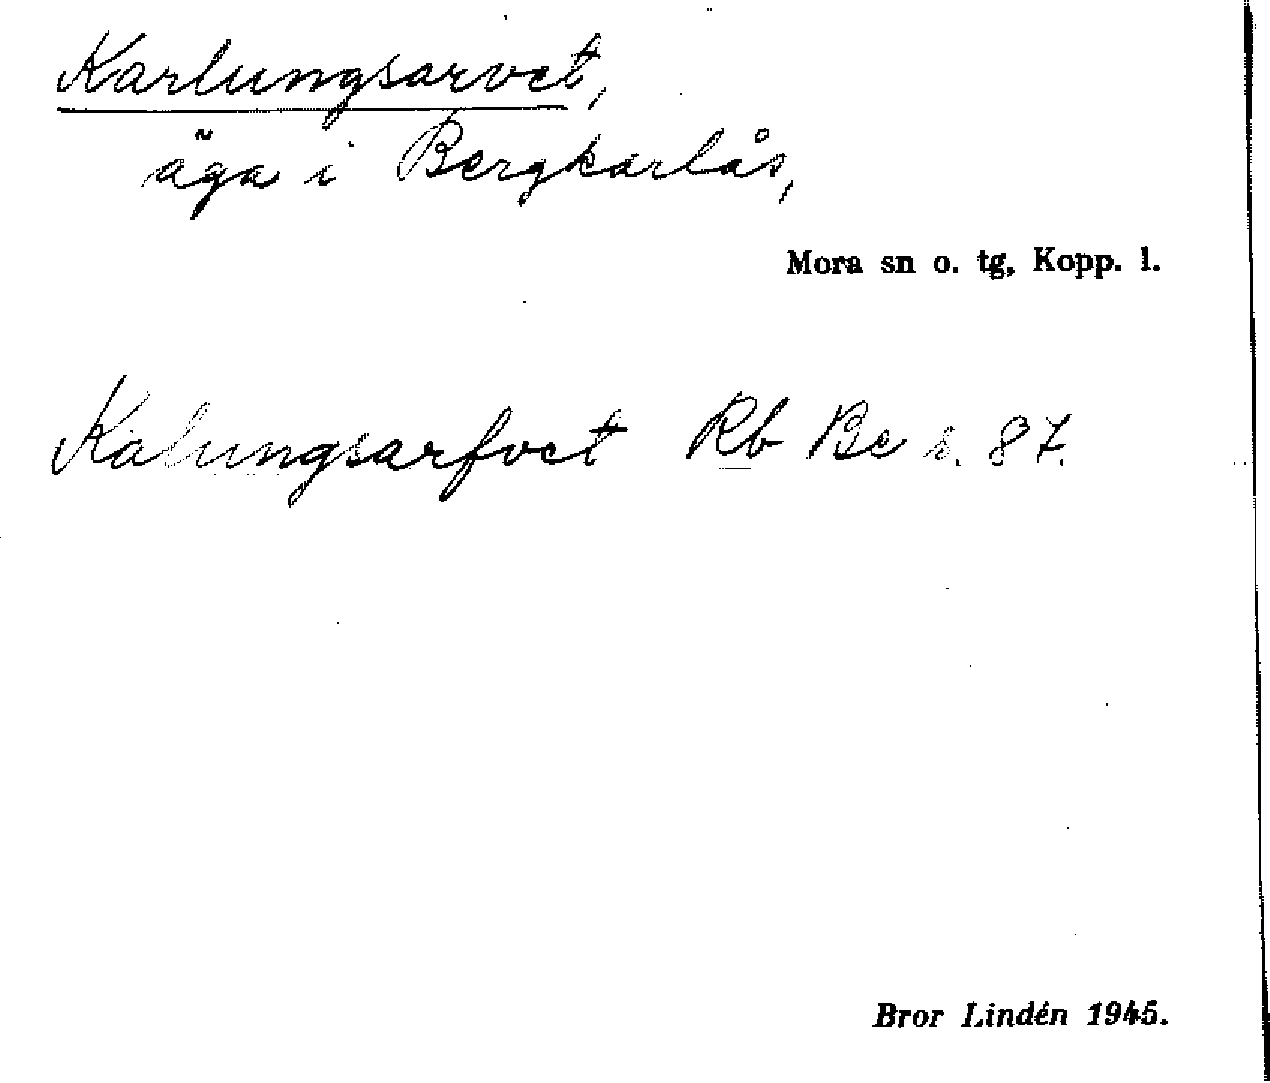 Karlungsarvet,
äga i Bergkarlås,
Mora sn o. tg, Kopp. l.
Kalungsarfvet Rb Be s. 87.
Bror Lindén 1945.